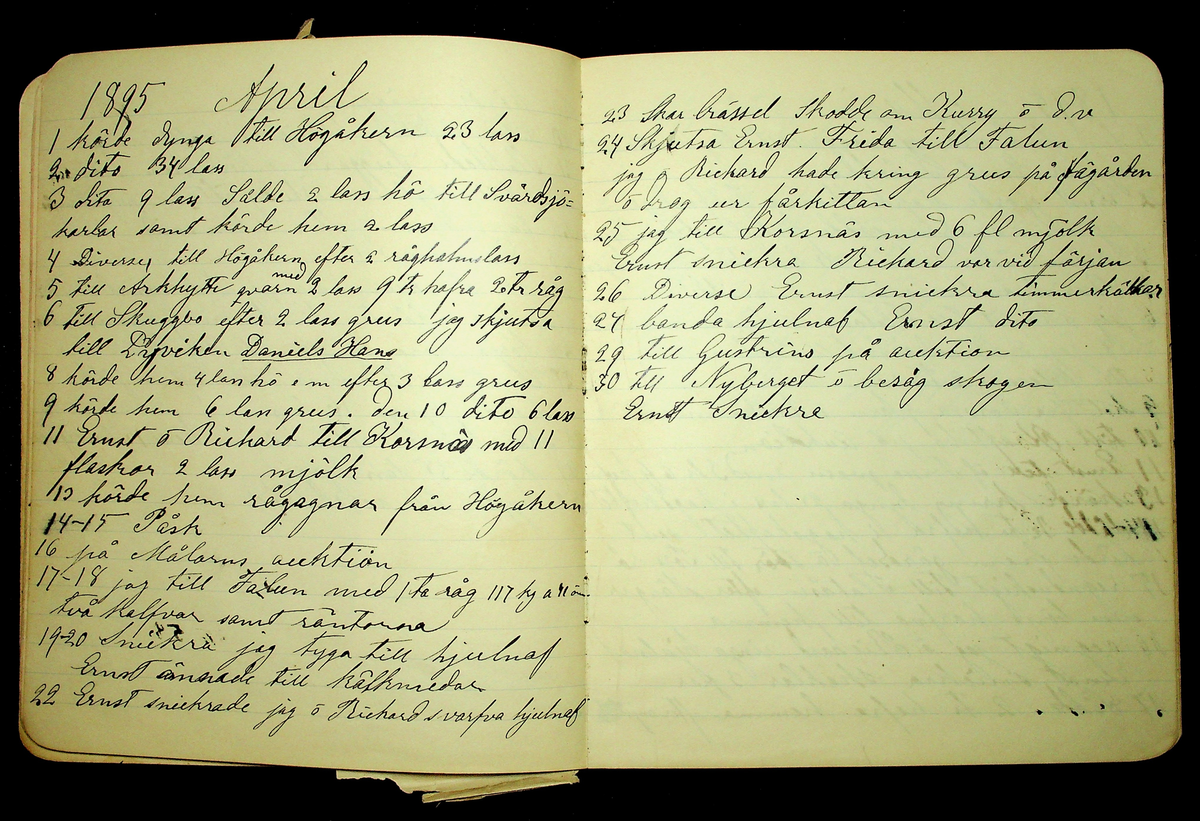 1895 April
1 körde dynga till Högåkern 23 lass
2 dito 34 lass
3 dito 9 lass Sålde 2 lass hö till Svärdsjö=
karlar samt körde hem 2 lass
4 Diverse, till Högåkern efter 2 råghalmslass
5 till Arkhytte qvarn med 2 lass 9 tr hafra 2 tr råg
6 till Skuggbo efter 2 lass grus jag skjutsa
till Dyviken Daniels Hans
8 körde hem 4 lass hö e m efter 3 lass grus
9 körde hem 6 lass grus. den 10 dito 6 lass
11 Ernst ö Richard till Korsnäs med 11
flaskor 2 lass mjölk
13 körde hem rågagnar från Högåkern
14-15 Påsk
16 på Målarns auktion
17-18 jag till Falun med 1 ta råg 117 kg a 11 ö
två kalfvar samt räntorna
19-20 Snickra jag tyga till hjulnaf
Ernst ämnade till kälkmedar
22 Ernst snickrade jag ö Richard svarfva hjulnaf
23 Skar brässel Skodde om Kurry ö d.v
24 Skjutsa Ernst. Frida till Falun
jag ö Richard hade kring grus på fägården
ö drog ur fårkittan
25 jag till Korsnäs med 6 fl mjölk
Ernst snickra Richard var vid färjan
26 Diverse Ernst snickra timmerkälker
27 banda hjulnaf Ernst dito
29 till Gustrins på auktion
30 till Nyberget ö besåg skogen
Ernst Snickra